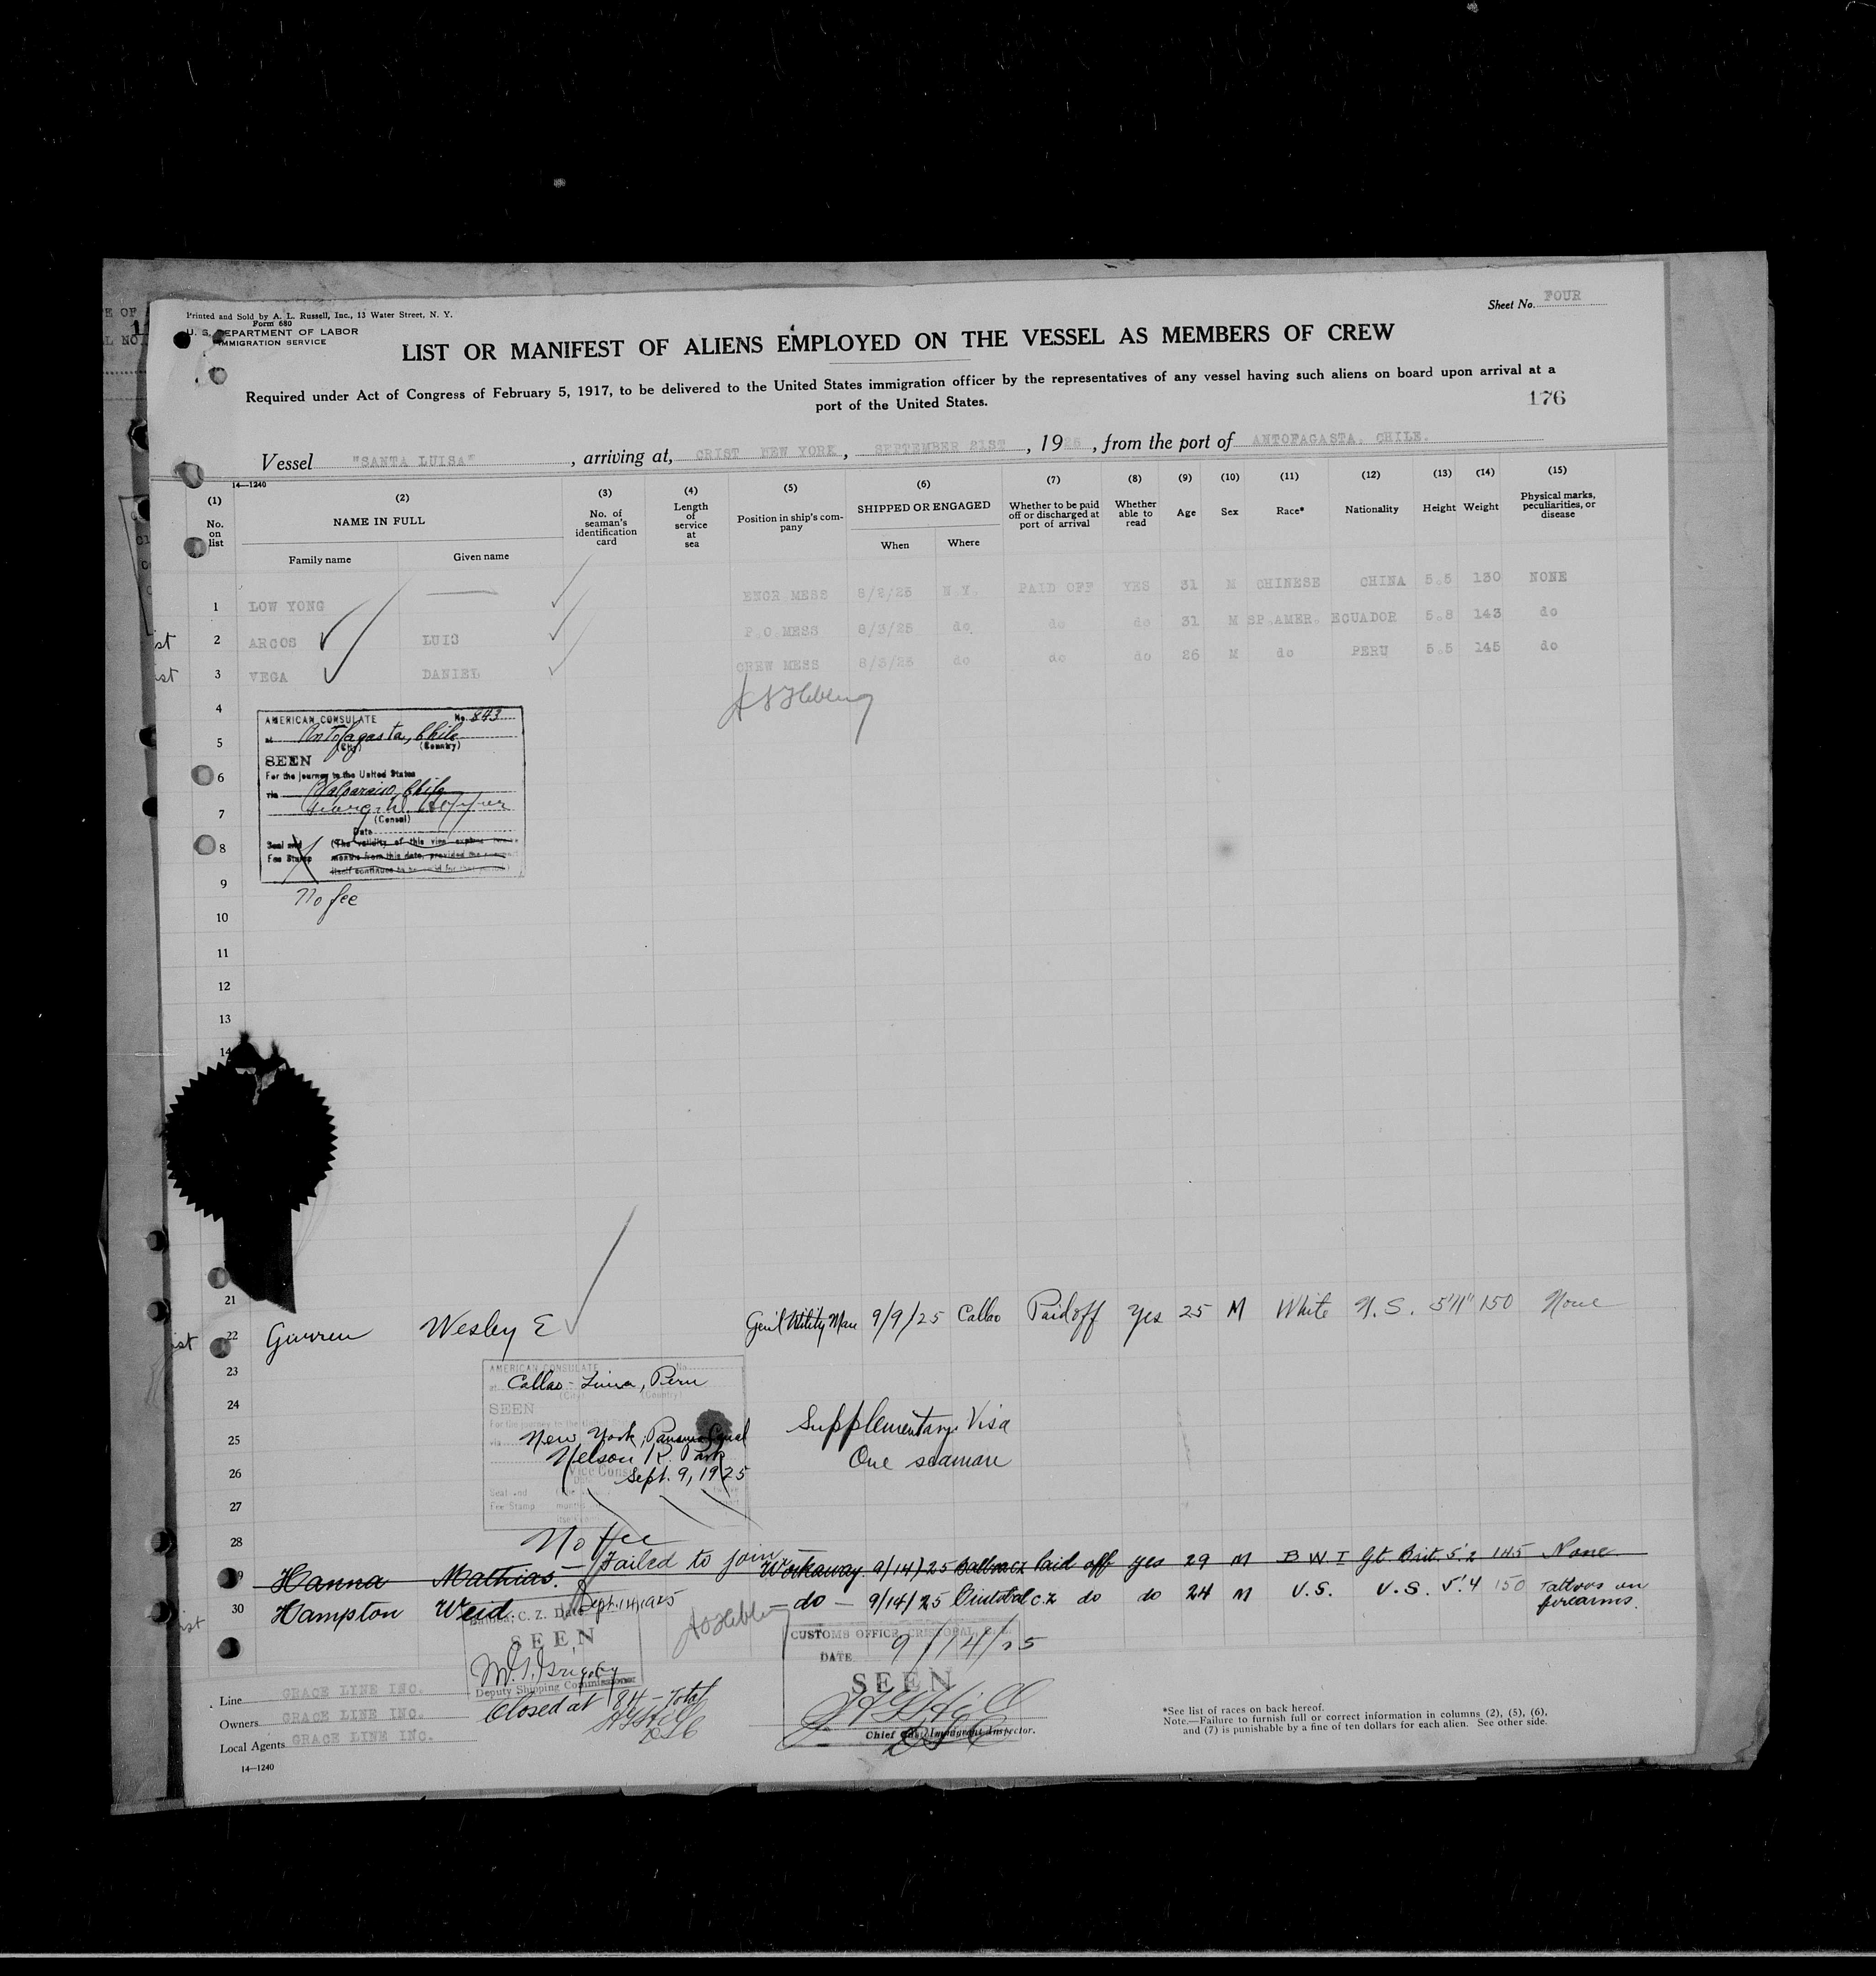 Sheet No. FOUR
Printed and Sold by A. L. Russell, Inc., 13 Water Street, N. Y.
Form 680
U. S. DEPARTMENT OF LABOR
IMMIGRATION SERVICE
LIST OR MANIFEST OF ALIENS EMPLOYED ON THE VESSEL AS MEMBERS OF CREW
Required under Act of Congress of February 5, 1917, to be delivered to the United States immigration officer by the representatives of any vessel having such aliens on board upon arrival at a
port of the United States.
176
Vessel "SANTA LUISA", arriving at, CRIST NEW YORK, SEPTEMBER 21ST, 1925, from the port of ANTOFAGASTA, CHILE.
14—1240
(1) (2) (3) (4) (5) (6) (7) (8) (9) (10) (11) (12) (13) (14) (15)
No. on list
NAME IN FULL
Family name Given name
No. of seaman's identification card
Length of service at sea
Position in ship's company
SHIPPED OR ENGAGED
When Where
Whether to be paid off or discharged at port of arrival
Whether able to read
Age
Sex
Race*
Nationality
Height
Weight
Physical marks, peculiarities, or disease
1 LOW YONG — ENGR MESS 8/2/25 N.Y. PAID OFF YES 31 M CHINESE CHINA 5.5 130 NONE
st 2 ARCOS LUIS P.O.MESS 8/3/25 do. do do 31 M SP.AMER. ECUADOR 5.8 143 do
st 3 VEGA DANIEL CREW MESS 8/3/25 do do do 26 M do PERU 5.5 145 do
4
AMERICAN CONSULATE No. 843
at Antofagasta, Chile
(City) (Country)
5
SEEN
6
For the journey to the United States
via Valparaiso, Chile
7
(Consul)
Date
8
Seal and Fee Stamp
(The validity of this visa expires
months from this date, provided the
itself continues to be valid for that period)
9
No fee
10
11
12
13
14
21
ist 22 Garren Wesley E Gen'l Utility Man 9/9/25 Callao Paid off Yes 25 M White U.S. 5'11" 150 None
23
AMERICAN CONSULATE No.
at Callao-Lima, Peru
(City) (Country)
24
SEEN
For the journey to the United States
Supplementary Visa
25
via New York, Panama Canal
Nelson R. Park
One seaman
26
Vice Consul
Sept. 9, 1925
27
Seal and
Fee Stamp
28
No fee
29 Hanna Mathias. — Failed to join — Workaway 9/14/25 Balboa cz Paid off yes 29 M B W I Gt Brit. 5'.2 145 None
ist 30 Hampton Weid. — do — 9/14/25 Cristobal c.z do do 24 M U.S. U.S. 5'.4 150 Tattoos on forearms.
Balboa, C. Z. Date Sept. 14, 1925
SEEN
Deputy Shipping Commissioner
Closed at 84 - Total
CUSTOMS OFFICE, CRISTOBAL, C. Z.
DATE 9/14/25
SEEN
Chief
Inspector.
Line GRACE LINE INC.
Owners GRACE LINE INC.
Local Agents GRACE LINE INC.
14—1240
*See list of races on back hereof.
Note.—Failure to furnish full or correct information in columns (2), (5), (6),
and (7) is punishable by a fine of ten dollars for each alien. See other side.